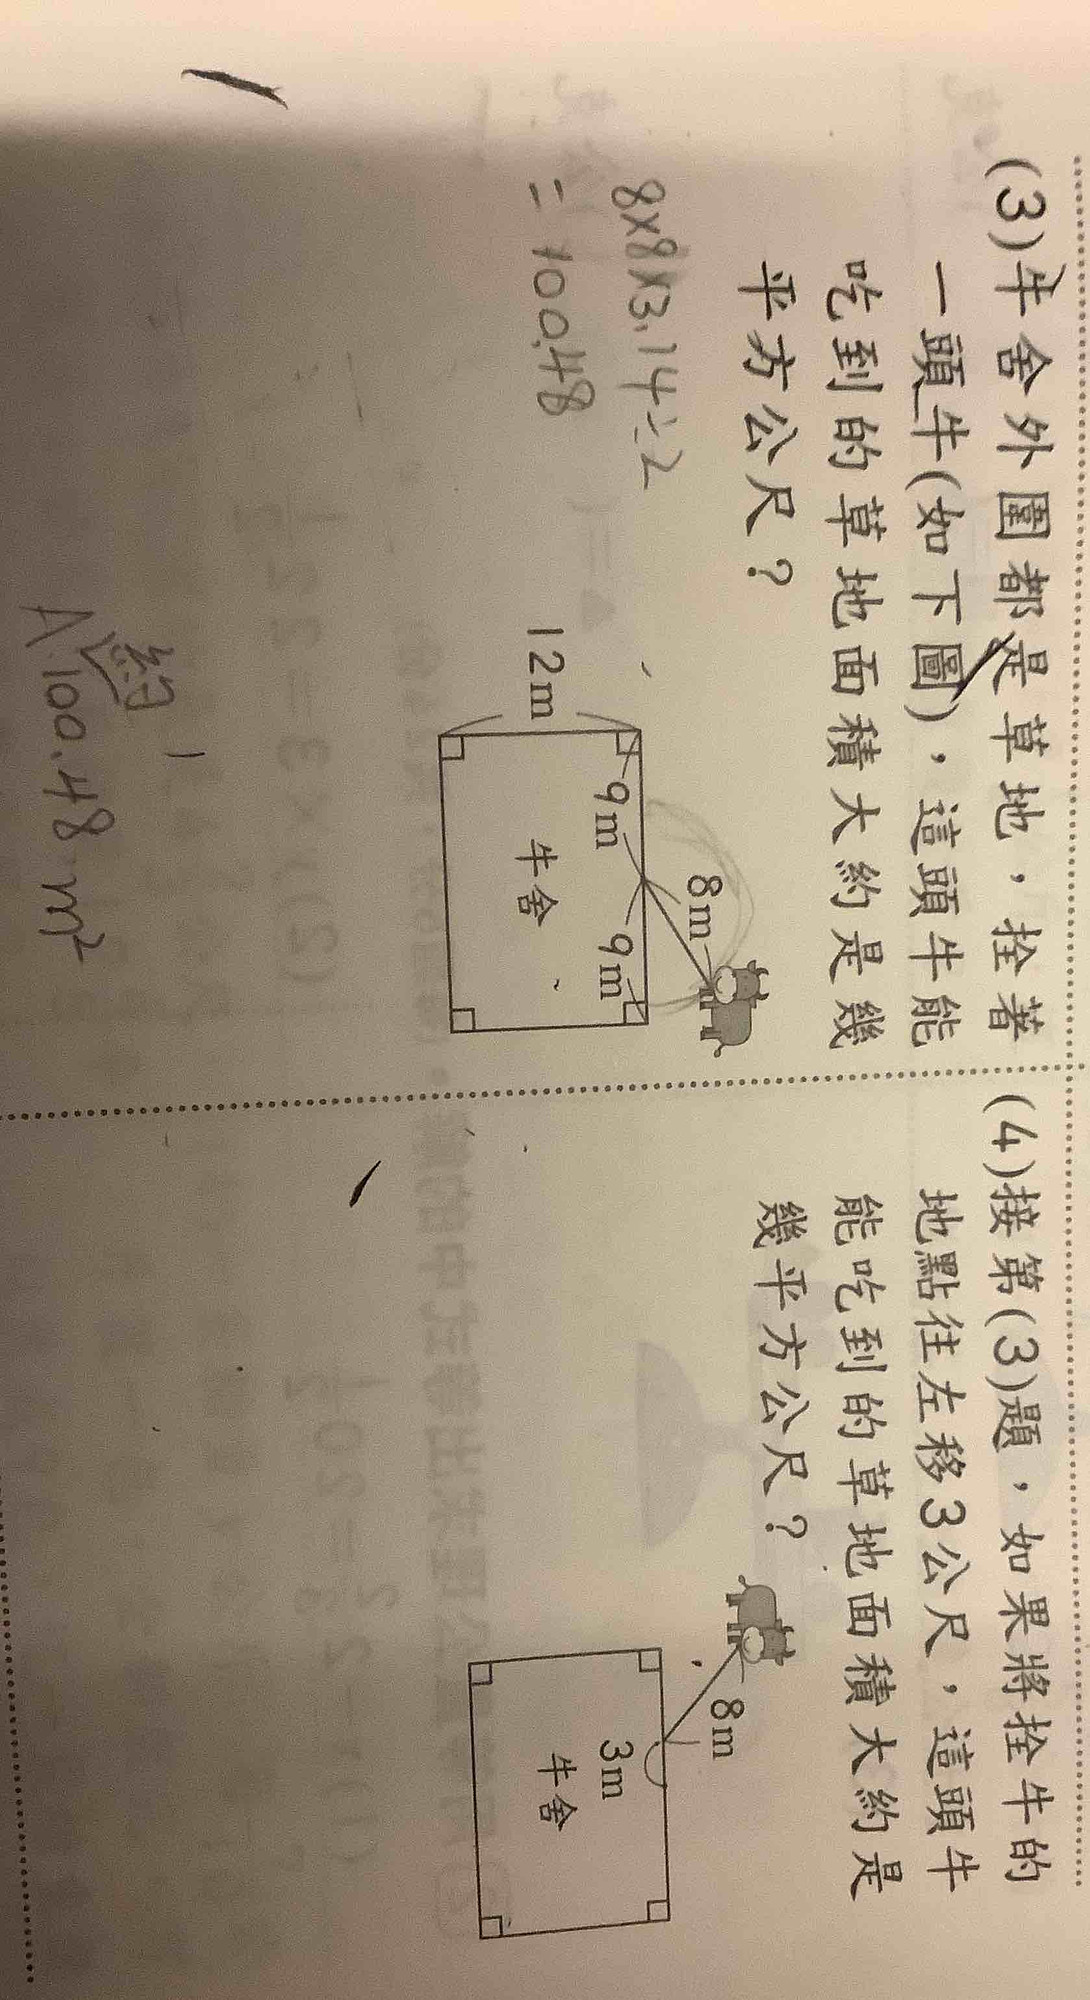 (3)牛舍外圍都是草地，拴著
一頭牛(如下圖)，這頭牛能
吃到的草地面積大約是幾
平方公尺？
8×8×3.14÷2
=100.48
8m
9m
9m
12m
牛舍
約
A:100.48m²
(4)接第(3)題，如果將拴牛的
地點往左移3公尺，這頭牛
能吃到的草地面積大約是
幾平方公尺？
8m
3m
牛舍